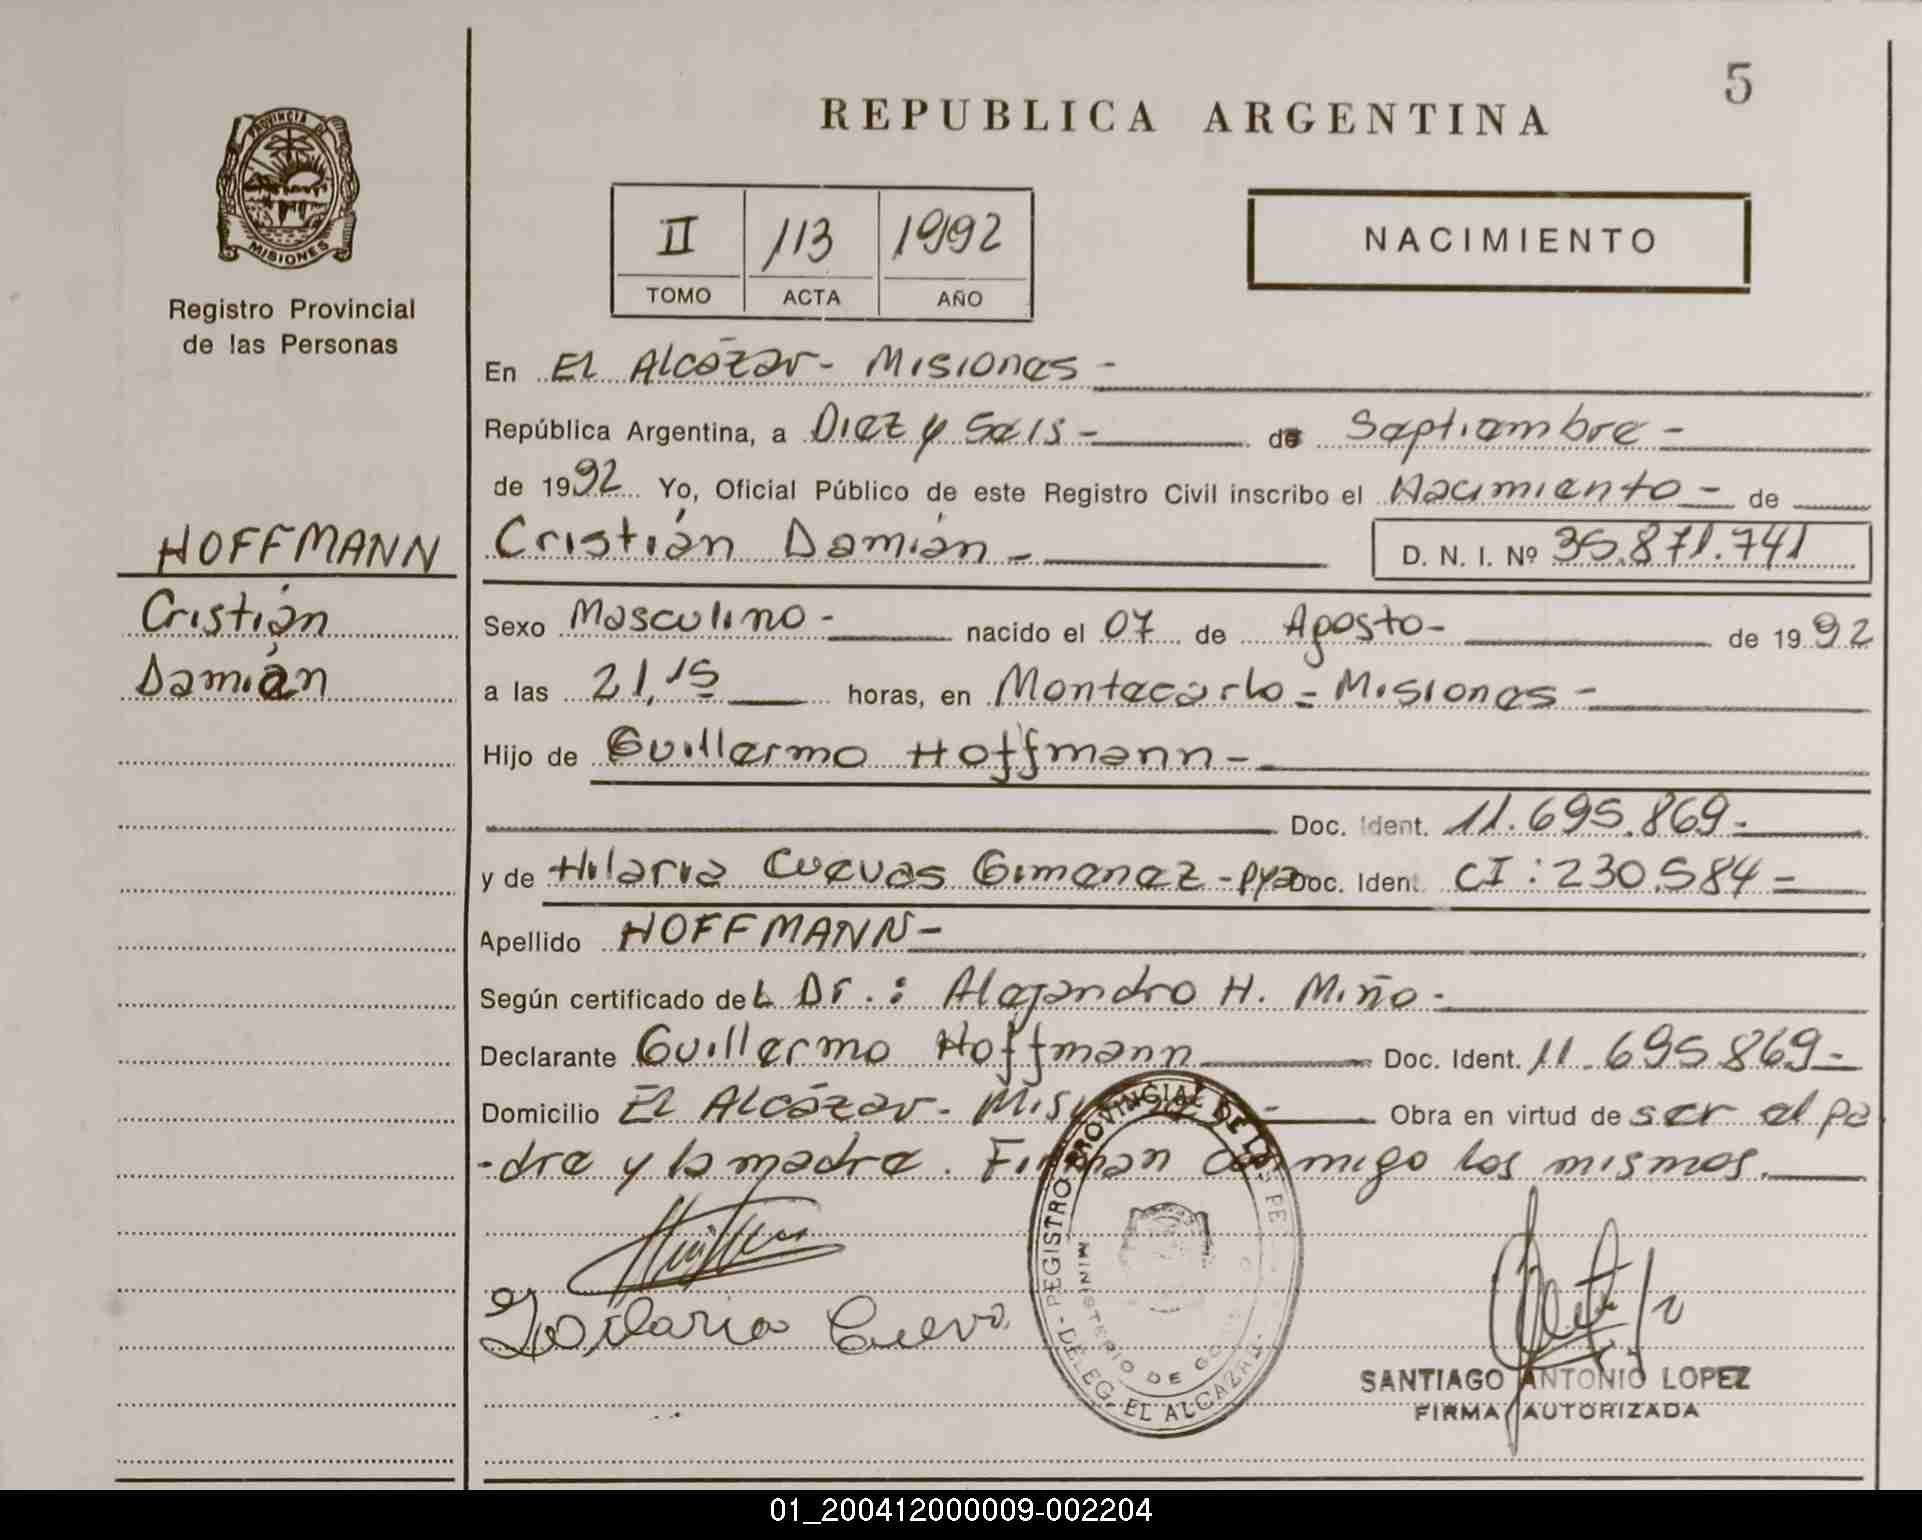 5
REPUBLICA ARGENTINA
PROVINCIA DE
MISIONES
Registro Provincial
de las Personas
II 113 1992
TOMO ACTA AÑO
NACIMIENTO
En El Alcázar - Misiones -
República Argentina, a Diez y Seis - de Septiembre -
de 1992 Yo, Oficial Público de este Registro Civil inscribo el Nacimiento - de
HOFFMANN
Cristián
Damián
Cristián Damián - D. N. I. Nº 35.871.741
Sexo Masculino - nacido el 07 de Agosto - de 1992
a las 21,15 horas, en Montecarlo - Misiones -
Hijo de Guillermo Hoffmann -
Doc. Ident. 11.695.869 -
y de Hilaria Cuevas Gimenez - pya Doc. Ident. CI: 230.584 -
Apellido HOFFMANN -
Según certificado del Dr.: Alejandro H. Miño -
Declarante Guillermo Hoffmann Doc. Ident. 11.695.869 -
Domicilio El Alcázar - Misiones - Obra en virtud de ser el pa
-dre y la madre. Firman conmigo los mismos.
Hilaria Cueva
REGISTRO PROVINCIAL DE LAS PE
MINISTERIO DE GO
- DELEG. EL ALCAZAR -
SANTIAGO ANTONIO LOPEZ
FIRMA AUTORIZADA
01_200412000009-002204